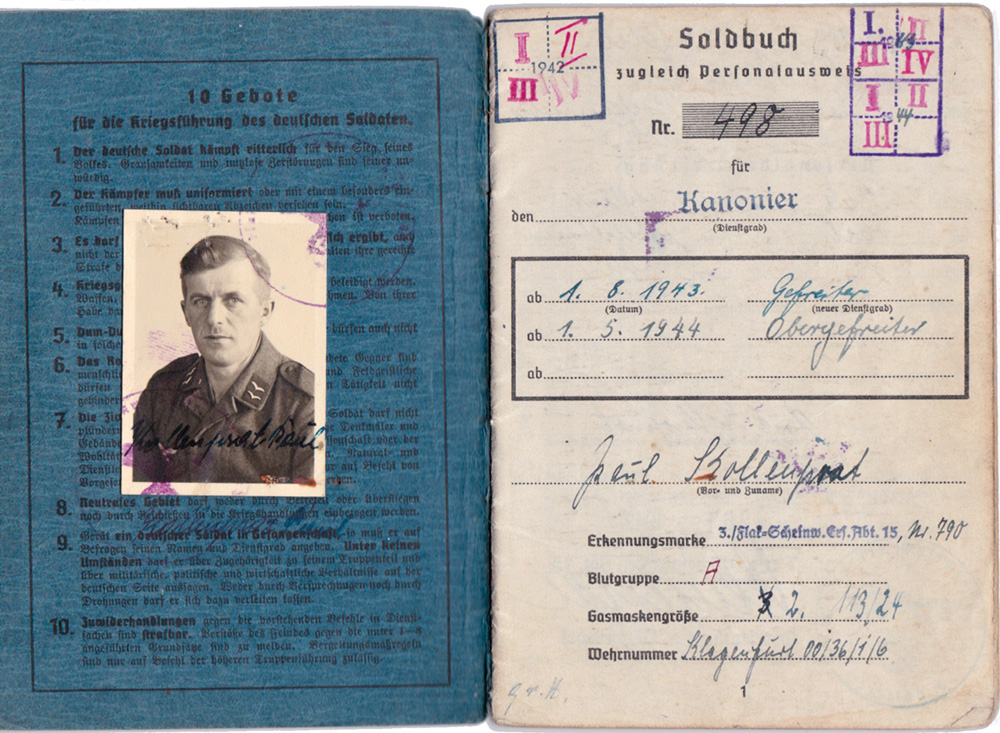 10 Gebote
für die Kriegsführung des deutschen Soldaten.
1. Der deutsche Soldat kämpft ritterlich für den Sieg seines
Volkes. Grausamkeiten und nutzlose Zerstörungen sind seiner un-
würdig.
2. Der Kämpfer muß uniformiert oder mit einem besonders ein-
geführten, weithin sichtbaren Abzeichen versehen sein.
Kämpfen ist verboten.
3. Es darf sich ergibt, auch
nicht der ihre gerechte
Strafe
4. Kriegsg beleidigt werden.
Waffen, Von ihrer
Habe
5. Dum-Du dürfen auch nicht
in solche
6. Das Ro Gegner und
menschli und Feldgeistliche
dürfen Tätigkeit nicht
gehinder
7. Die Ziv Soldat darf nicht
plünder Denkmäler und
Gebäude oder der
Wohltät Natural- und
Dienstle nur auf Befehl von
Vorgese
8. Neutrales Gebiet darf weder durch oder Überfliegen
noch durch Beschießen in die Kriegshandlungen einbezogen werden.
9. Gerät ein deutscher Soldat in Gefangenschaft, so muß er auf
Befragen seinen Namen und Dienstgrad angeben. Unter keinen
Umständen darf er über Zugehörigkeit zu seinem Truppenteil und
über militärische, politische und wirtschaftliche Verhältnisse auf der
deutschen Seite aussagen. Weder durch Versprechungen noch durch
Drohungen darf er sich dazu verleiten lassen.
10. Zuwiderhandlungen gegen die vorstehenden Befehle in Dienst-
sachen sind strafbar. Verstöße des Feindes gegen die unter 1–8
angeführten Grundsätze sind zu melden. Vergeltungsmaßregeln
sind nur auf Befehl der höheren Truppenführung zulässig.
Kollenprat Paul
I II
1942
III IV
Soldbuch
zugleich Personalausweis
I. II
1943
III IV
I II
1944
III
Nr. 498
für
den Kanonier
(Dienstgrad)
ab 1. 8. 1943. Gefreiter
(Datum) (neuer Dienstgrad)
ab 1. 5. 1944 Obergefreiter
ab
Paul Kollenprat
(Vor- und Zuname)
Erkennungsmarke 3./Flak-Scheinw. Ers. Abt. 15, Nr. 790
Blutgruppe A
Gasmaskengröße 2. 113/24
Wehrnummer Klagenfurt 00/36/1/6
1